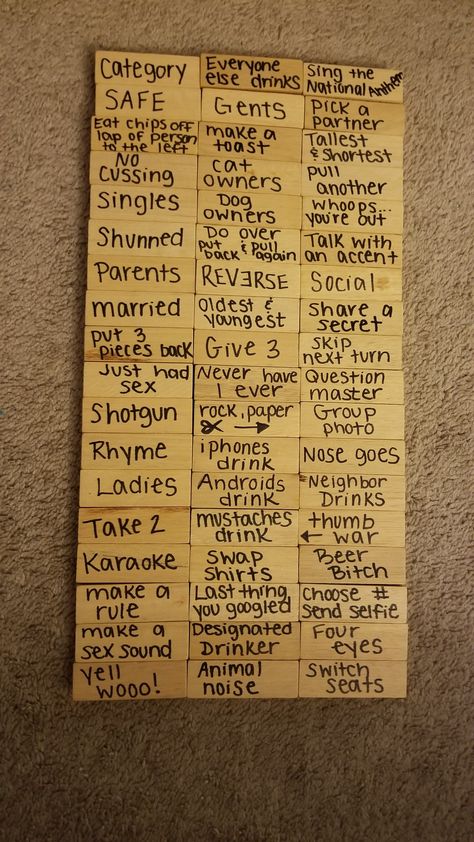 Category
Everyone
else drinks
Sing the
National Anthem
SAFE
Gents
Pick a
partner
Eat chips off
lap of person
to the left
make a
toast
Tallest
& Shortest
NO
Cussing
cat
owners
pull
another
Singles
Dog
owners
whoops...
you're out
Shunned
Do over
put & pull
back again
Talk with
an accent
Parents
REVERSE
Social
married
oldest &
youngest
share a
secret
put 3
pieces back
Give 3
skip
next turn
Just had
sex
Never have
I ever
Question
master
Shotgun
rock, paper
✂ →
Group
photo
Rhyme
iphones
drink
Nose goes
Ladies
Androids
drink
Neighbor
Drinks
Take 2
mustaches
drink
thumb
← war
Karaoke
Swap
Shirts
Beer
Bitch
make a
rule
Last thing
you googled
Choose #
send selfie
make a
sex sound
Designated
Drinker
Four
eyes
Yell
wooo!
Animal
noise
Switch
seats